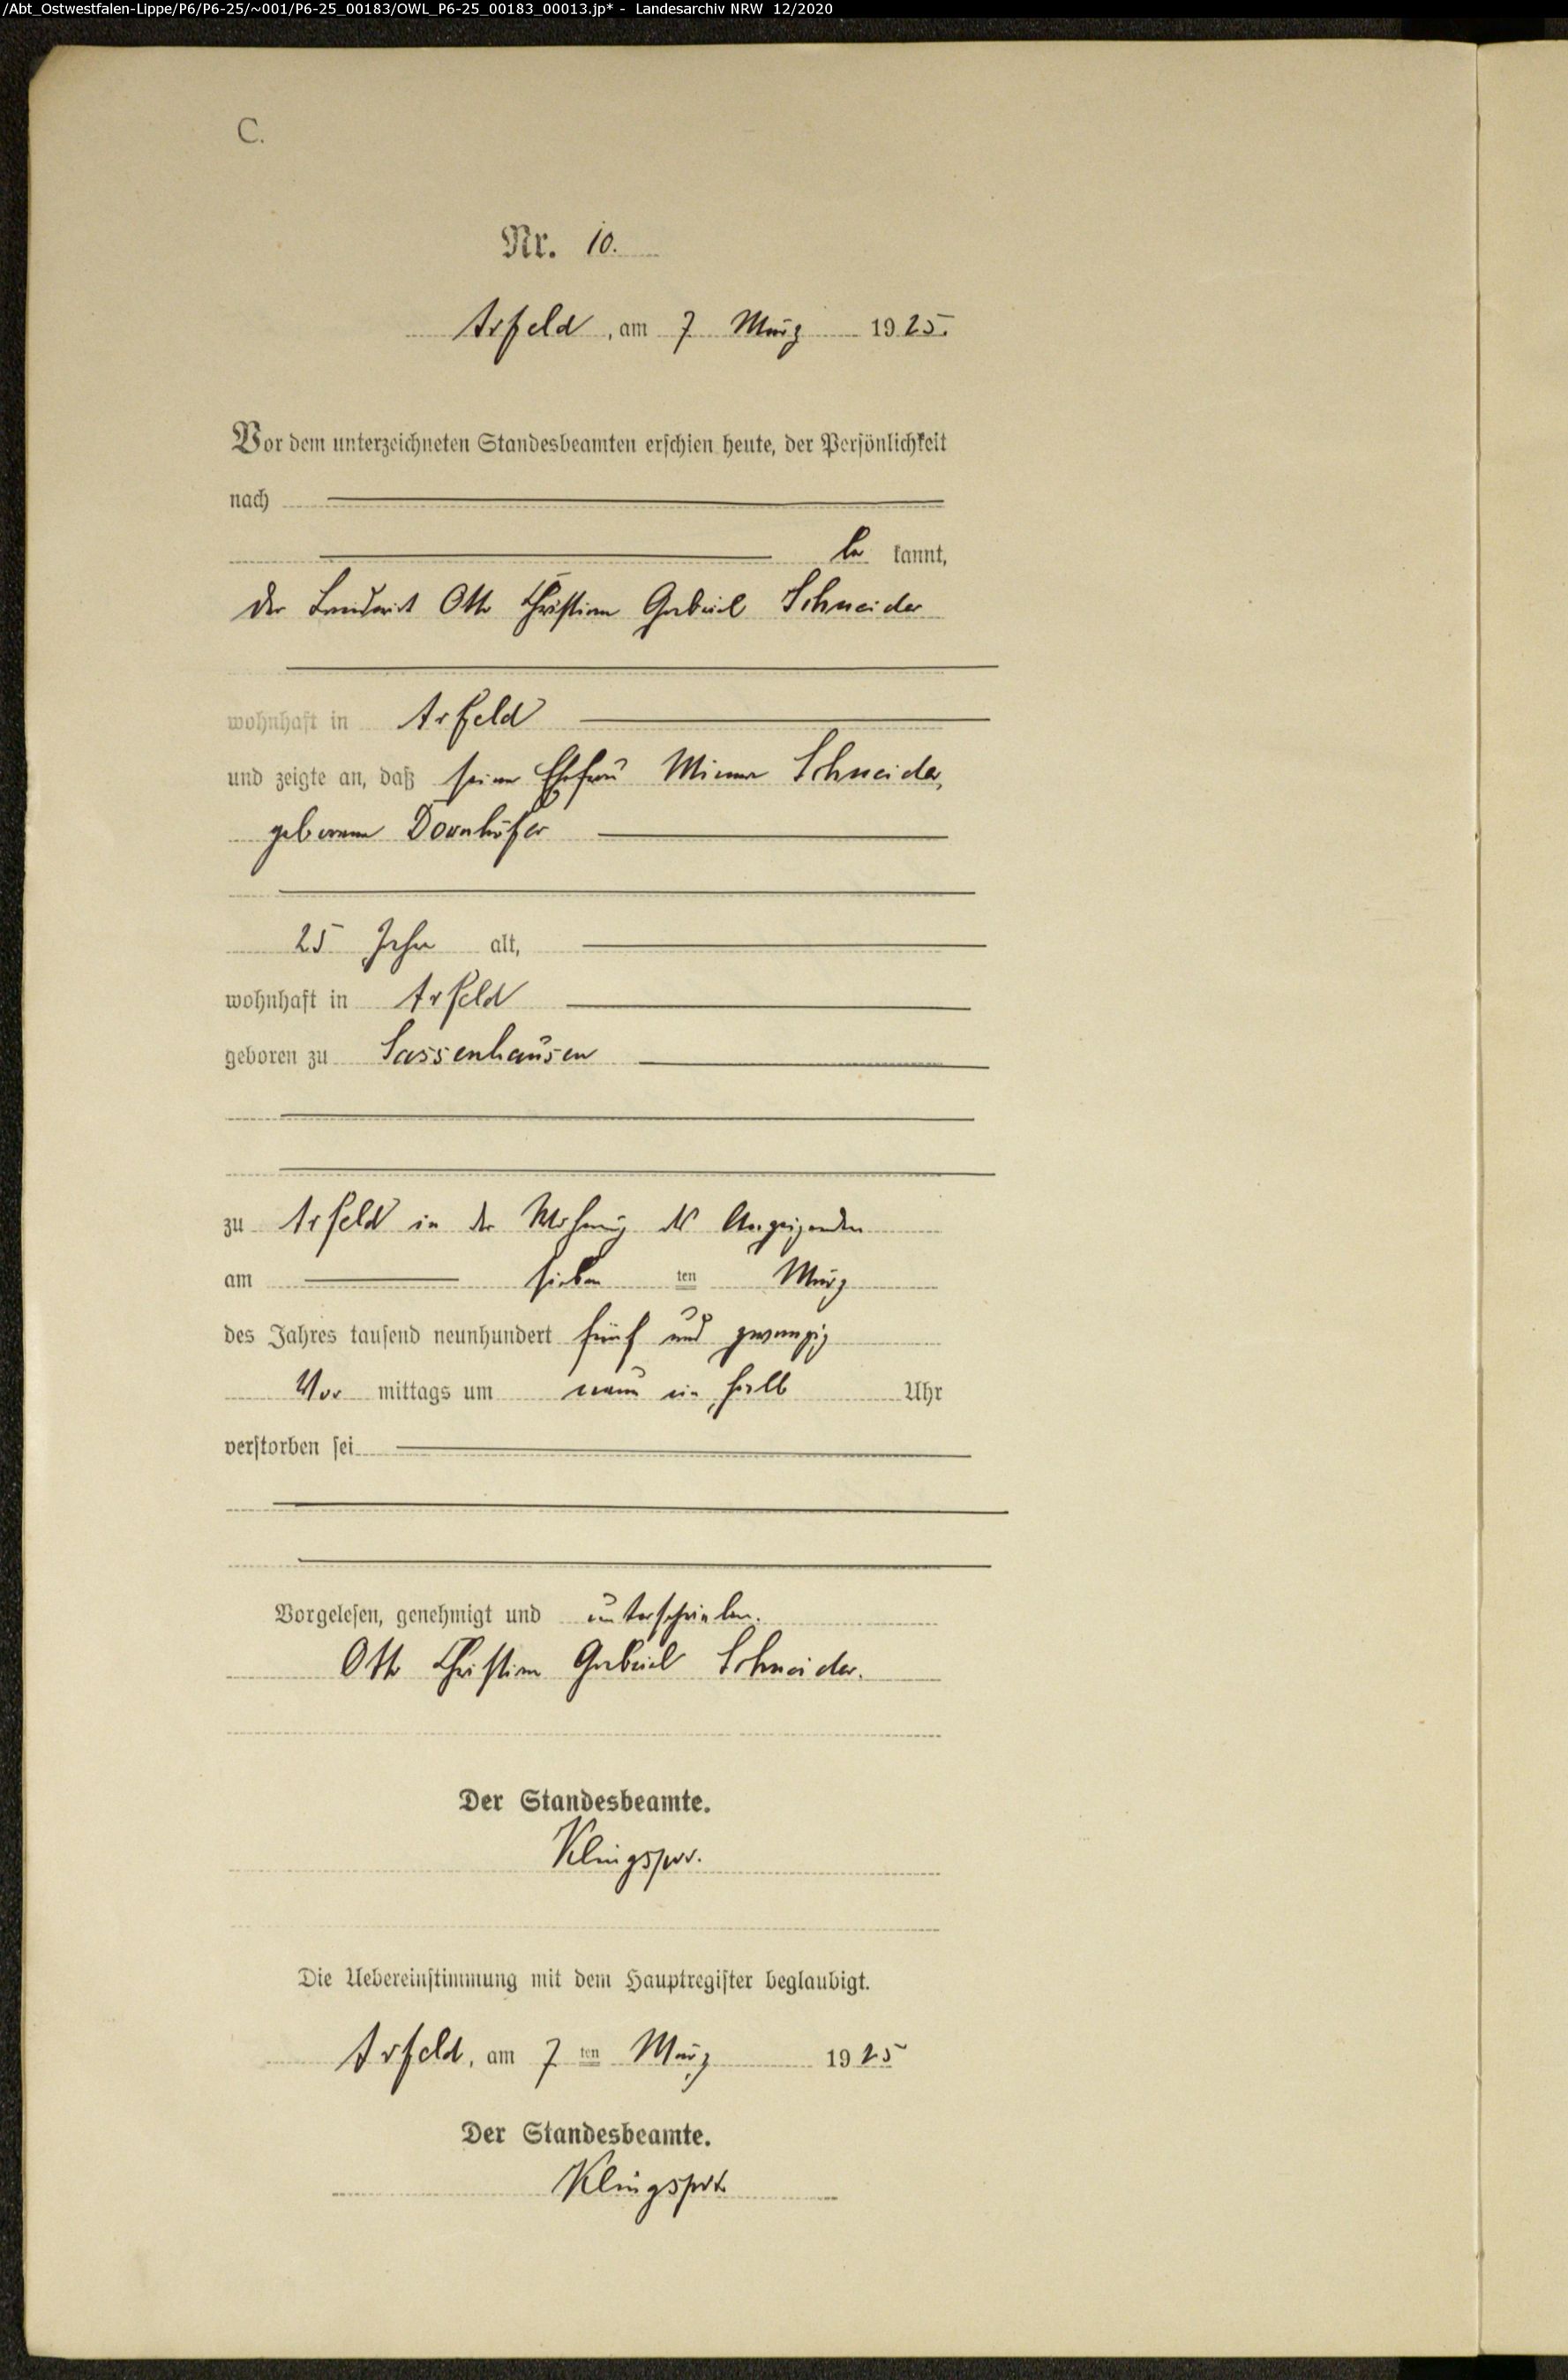 /Abt_Ostwestfalen-Lippe/P6/P6-25/~001/P6-25_00183/OWL_P6-25_00183_00013.jp* - Landesarchiv NRW 12/2020
C.
Nr. 10.
Arfeld, am 7 März 1925.
Vor dem unterzeichneten Standesbeamten erschien heute, der Persönlichkeit
nach
be kannt,
der Landwirt Otto Christian Gabriel Schneider
wohnhaft in Arfeld
und zeigte an, daß seine Ehefrau Minna Schneider,
geborene Dornhöfer
25 Jahre alt,
wohnhaft in Arfeld
geboren zu Sassenhausen
zu Arfeld in der Wohnung des Anzeigenden
am sieben ten März
des Jahres tausend neunhundert fünf und zwanzig
Vor mittags um neun ein halb Uhr
verstorben sei
Vorgelesen, genehmigt und unterschrieben.
Otto Christian Gabriel Schneider.
Der Standesbeamte.
Klingspor.
Die Uebereinstimmung mit dem Hauptregister beglaubigt.
Arfeld, am 7 ten März 1925
Der Standesbeamte.
Klingspor.